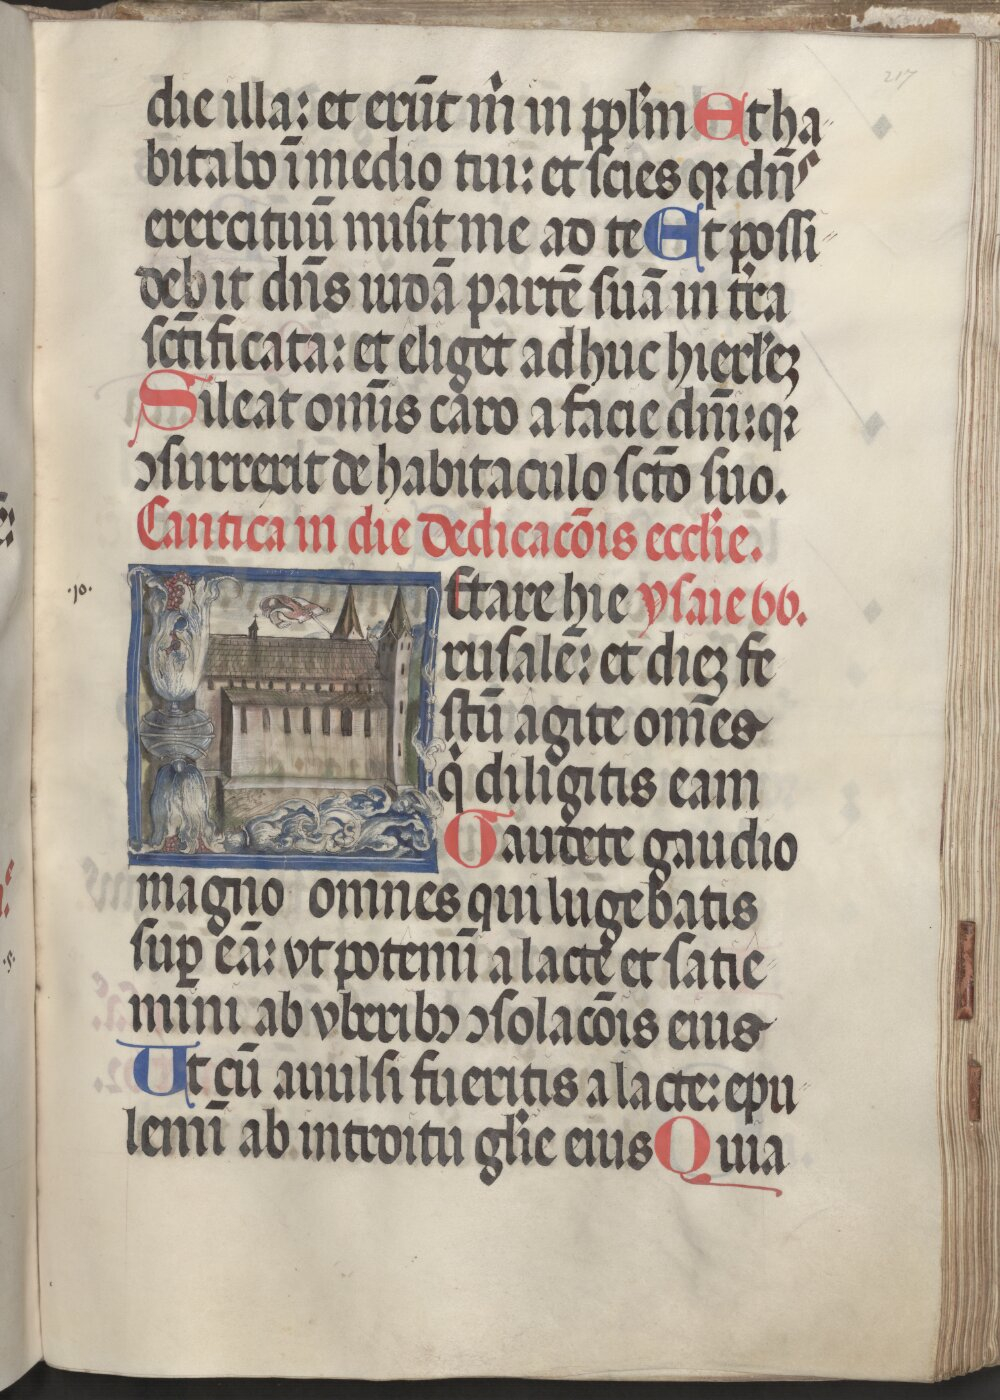 217
die illa: et erūt m̄ in pplm̄ Et ha
bitabo ī medio tui: et scies qꝛ dn̄s
exercituū misit me ad te Et possi
debit dn̄s iudā partē suā in tr̄a
sctīficata: et eliget adhuc hierl̄eꝫ
Sileat omīs caro a facie dnī: qꝛ
ↄsurrexit de habitaculo sctō suo.
Cantica in die dedicacōis eccl̄ie.
.10. etare hie ysaie 66.
rusalē: et dieꝫ fe
stū agite om̄es
q̇ diligitis eam
Gaudete gaudio
magno omnes qui lugebatis
suꝑ eā: vt potemī a lacte et satie
mini ab vberibꝰ ↄsolacōis eius
Ut cū auulsi fueritis a lacte: epu
lemī ab introitu gl̄ie eius Quia